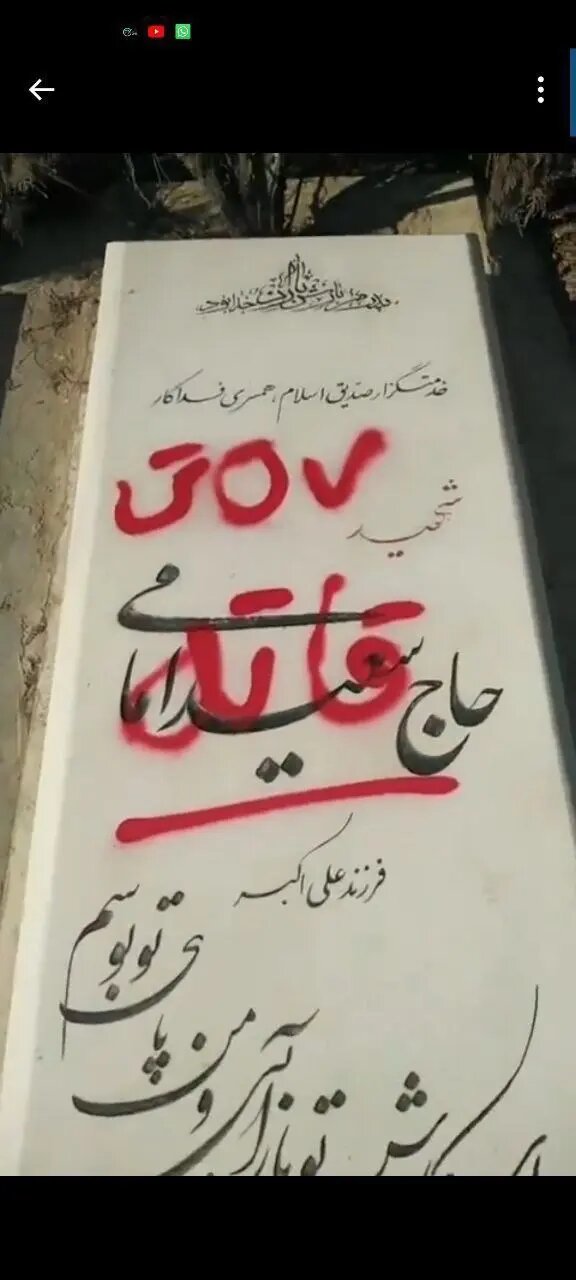 خدمتگزار صدیق اسلام، همسری فداکار
شهید
حاج سعید امامی
قاتل
فرزند علی اکبر
ای کاش تو باز آئی و من پای تو بوسم